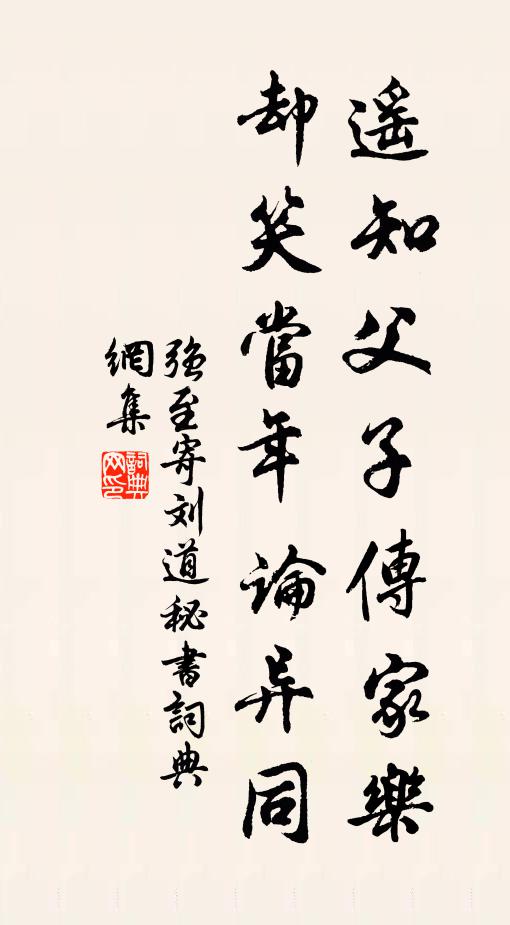 遥知父子傳家樂
却笑當年論异同
强至寄刘道秘書詞典
網集
詞典網印